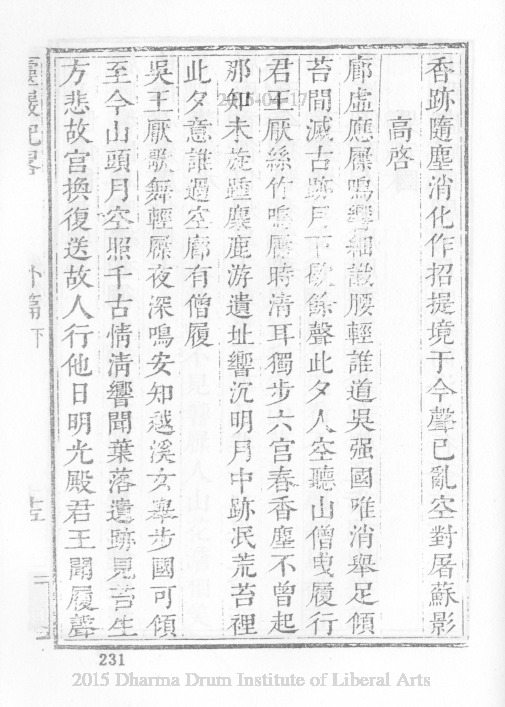 香跡隨塵消化作招提境于今聲已亂空對屠蘇影
高啓
廊虛應屧鳴響細識腰輕誰道吳强國唯消舉足傾
苔間滅古跡月下歇餘聲此夕人空聽山僧曳履行
君王厭絲竹鳴屧時清耳獨步六宮春香塵不曾起
那知未旋踵麋鹿游遺址響沉明月中跡泯荒苔裡
此夕意誰過空廊有僧履
吳王厭歌舞輕屧夜深鳴安知越溪女舉步國可傾
至今山頭月空照千古情淸響聞葉落遺跡見苔生
方悲故宮換復送故人行他日明光殿君王聞履聲
外篇下
231
2015 Dharma Drum Institute of Liberal Arts